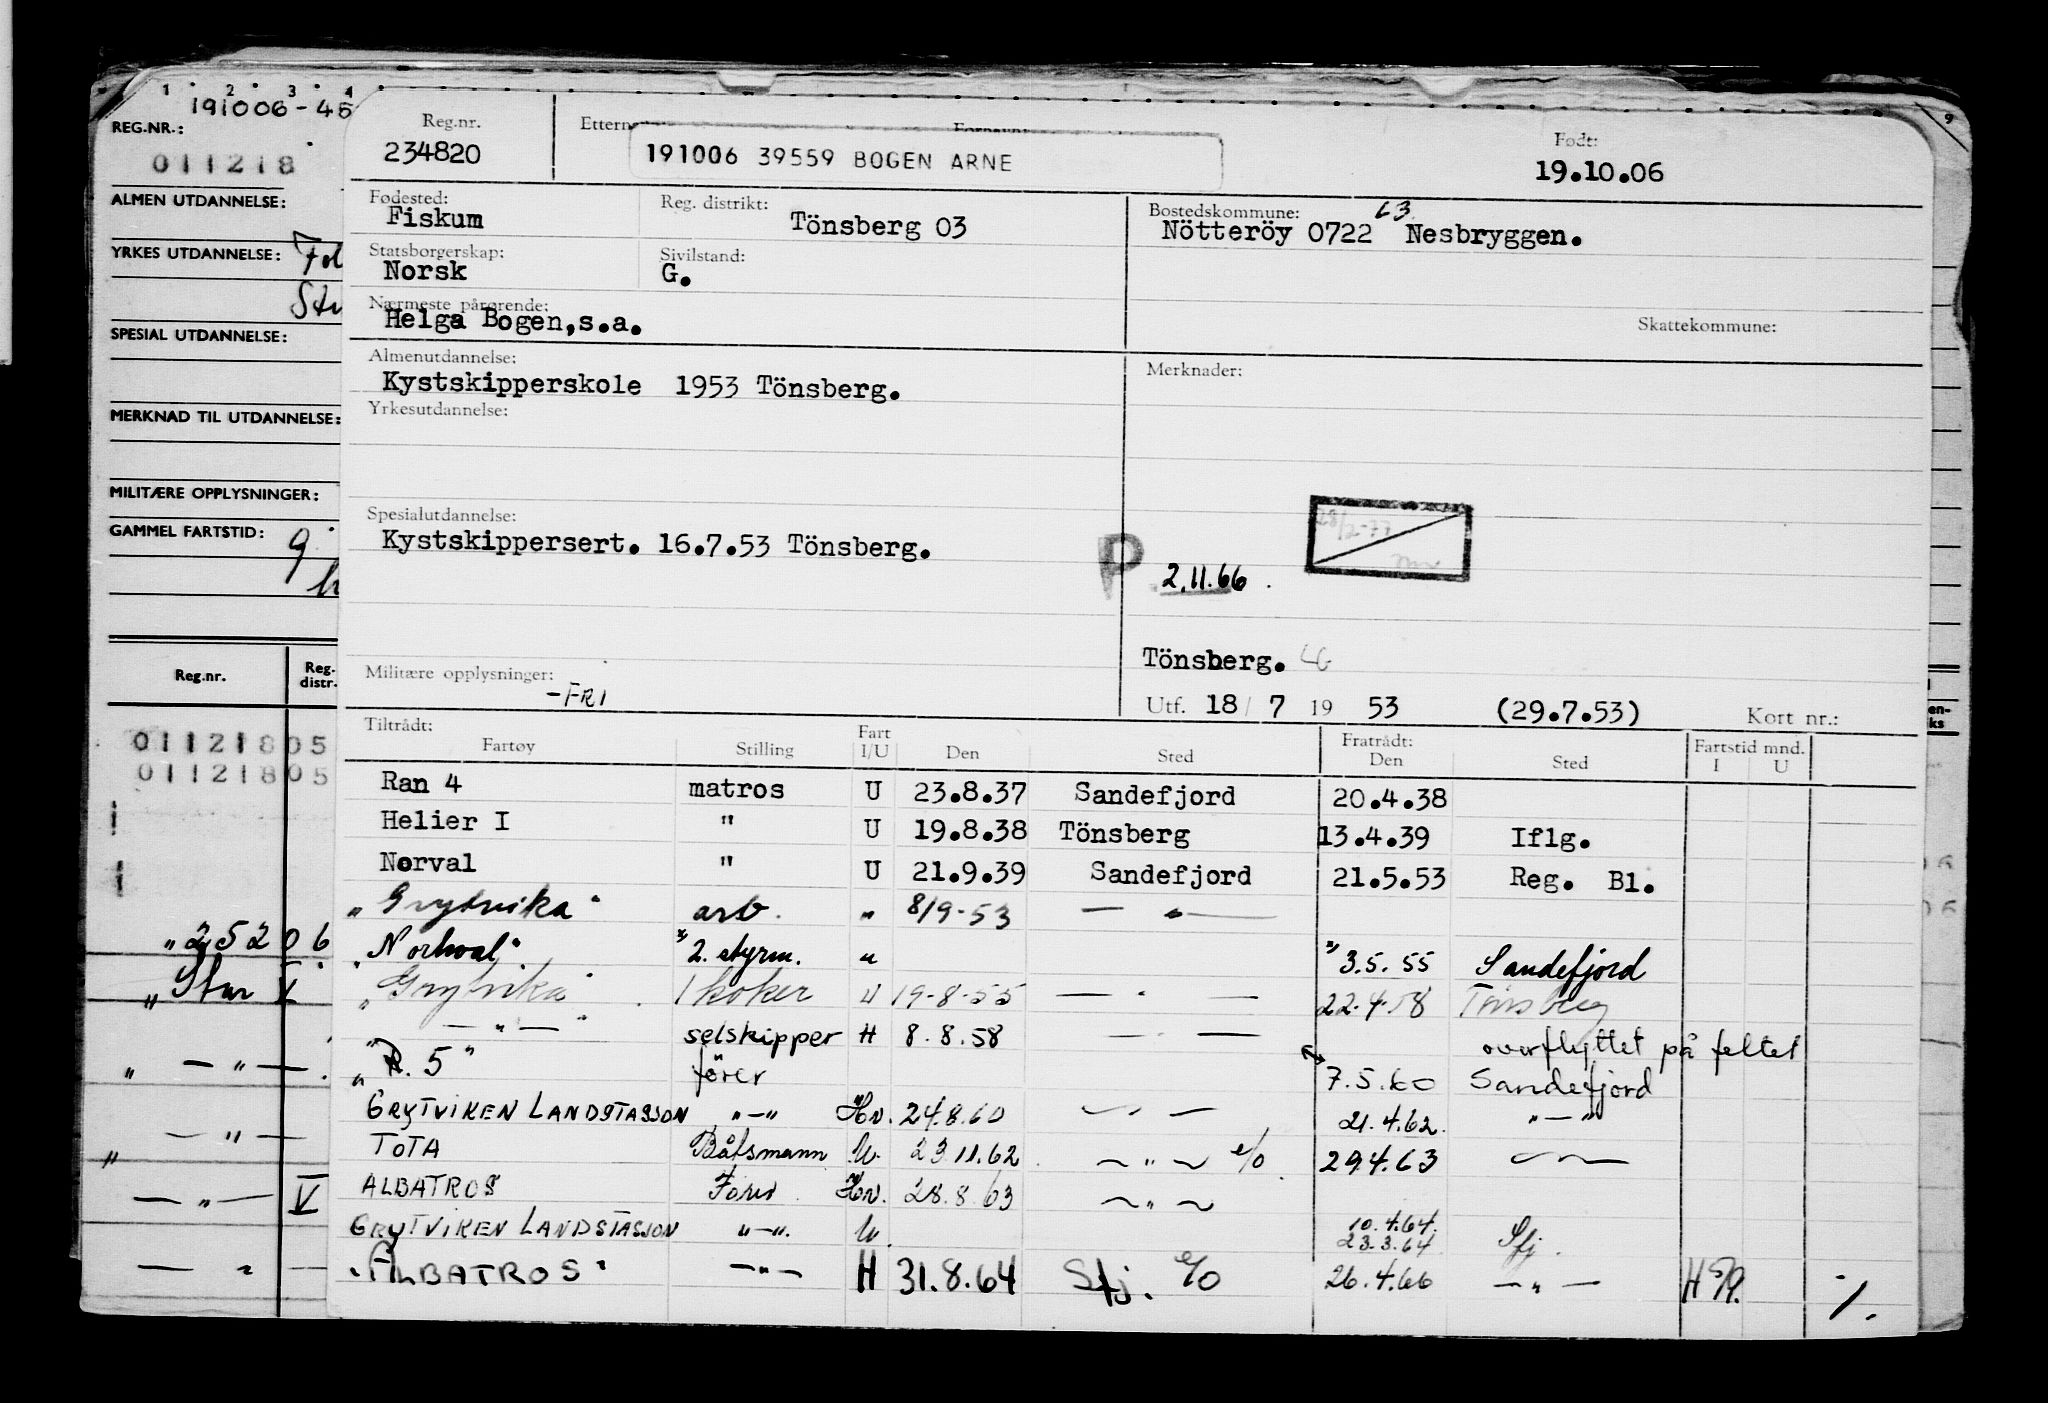 1 2 3 4
191006-45
REG.NR.:
011218
ALMEN UTDANNELSE:
YRKES UTDANNELSE:
SPESIAL UTDANNELSE:
MERKNAD TIL UTDANNELSE:
MILITÆRE OPPLYSNINGER:
GAMMEL FARTSTID:
Reg.nr. Reg. distr.
01121805
01121805
„25206
„Star I
„ — „ — .
„ — „ —
— „ — V
— „ —
9
Reg.nr. Fornavn: Født:
234820 191006 39559 BOGEN ARNE 19.10.06
Fødested: Reg. distrikt: Bostedskommune: 63
Fiskum Tönsberg 03 Nötteröy 0722 Nesbryggen.
Statsborgerskap: Sivilstand:
Norsk G.
Nærmeste pårørende:
Helga Bogen,s.a. Skattekommune:
Almenutdannelse: Merknader:
Kystskipperskole 1953 Tönsberg.
Yrkesutdannelse:
Spesialutdannelse:
28/2-77
Kystskippersert. 16.7.53 Tönsberg.
P 2.11.66.
Tönsberg.
Militære opplysninger:
-FRI
Utf. 18/ 7 19 53 (29.7.53) Kort nr.:
Tiltrådt: Fart Fratrådt: Fartstid mnd.
Fartøy Stilling I/U Den Sted Den Sted I U
Ran 4 matros U 23.8.37 Sandefjord 20.4.38
Helier I " U 19.8.38 Tönsberg 13.4.39 Iflg.
Norval " U 21.9.39 Sandefjord 21.5.53 Reg. Bl.
„Grytvika" arb. „ 8/9-53 — „ —
„Norhval" 2. styrm. „ 3.5.55 Sandefjord
„Grytvika" 1 koker U 19-8-55 — „ — 22.4.58 Tönsberg
— „ — selskipper H 8.8.58 — „ — overflyttet på feltet
„R. 5" förer 7.5.60 Sandefjord
GRYTVIKEN LANDSTASJON „—„ Hv. 24.8.60 — „ — 21.4.62. „—„
TOTA Båtsmann U 23.11.62 — „ — e/o 29.4.63 — „ —
ALBATROS Förer Hv. 28.8.63 — „ —
GRYTVIKEN LANDSTASJON „—„. U. 10.4.64. 23.3.64 Sfj.
„ALBATROS" —„— H 31.8.64 Sfj. e/o 26.4.66 — „ — H 59. %.